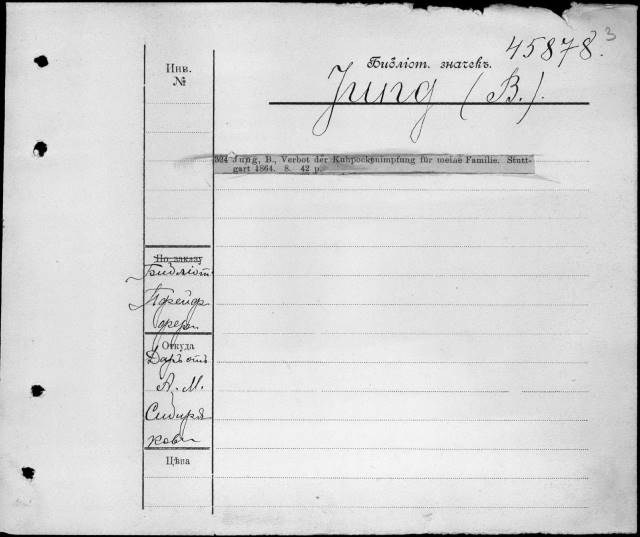 3
45878.
Инв.
№
Библіот. значекъ.
Jung (B.).
324 Jung, B., Verbot der Kuhpockenimpfung für meine Familie. Stutt-
gart 1864. 8. 42 p.
По заказу
Библіот.
Прейфр
Откуда
Даръ отъ
А. М.
Сибиря
кова
Цѣна